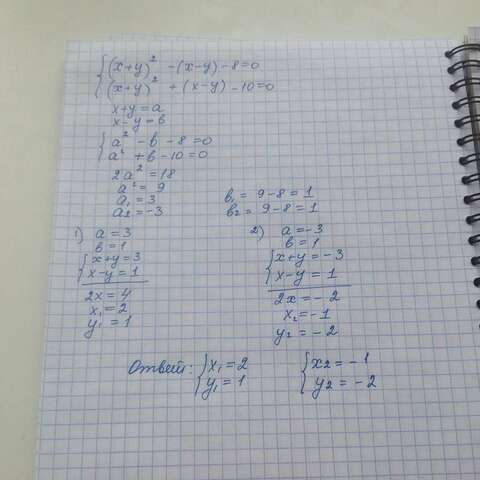 (x+y)² - (x-y) - 8 = 0
(x+y)² + (x-y) - 10 = 0
x+y = a
x-y = в
a² - в - 8 = 0
a² + в - 10 = 0
2a² = 18
a² = 9
a₁ = 3
a₂ = -3
в₁ = 9-8 = 1
в₂ = 9-8 = 1
1) a = 3
в = 1
x+y = 3
x-y = 1
2x = 4
x₁ = 2
y₁ = 1
2) a = -3
в = 1
x+y = -3
x-y = 1
2x = -2
x₂ = -1
y₂ = -2
Ответ: x₁ = 2
y₁ = 1
x2 = -1
y2 = -2